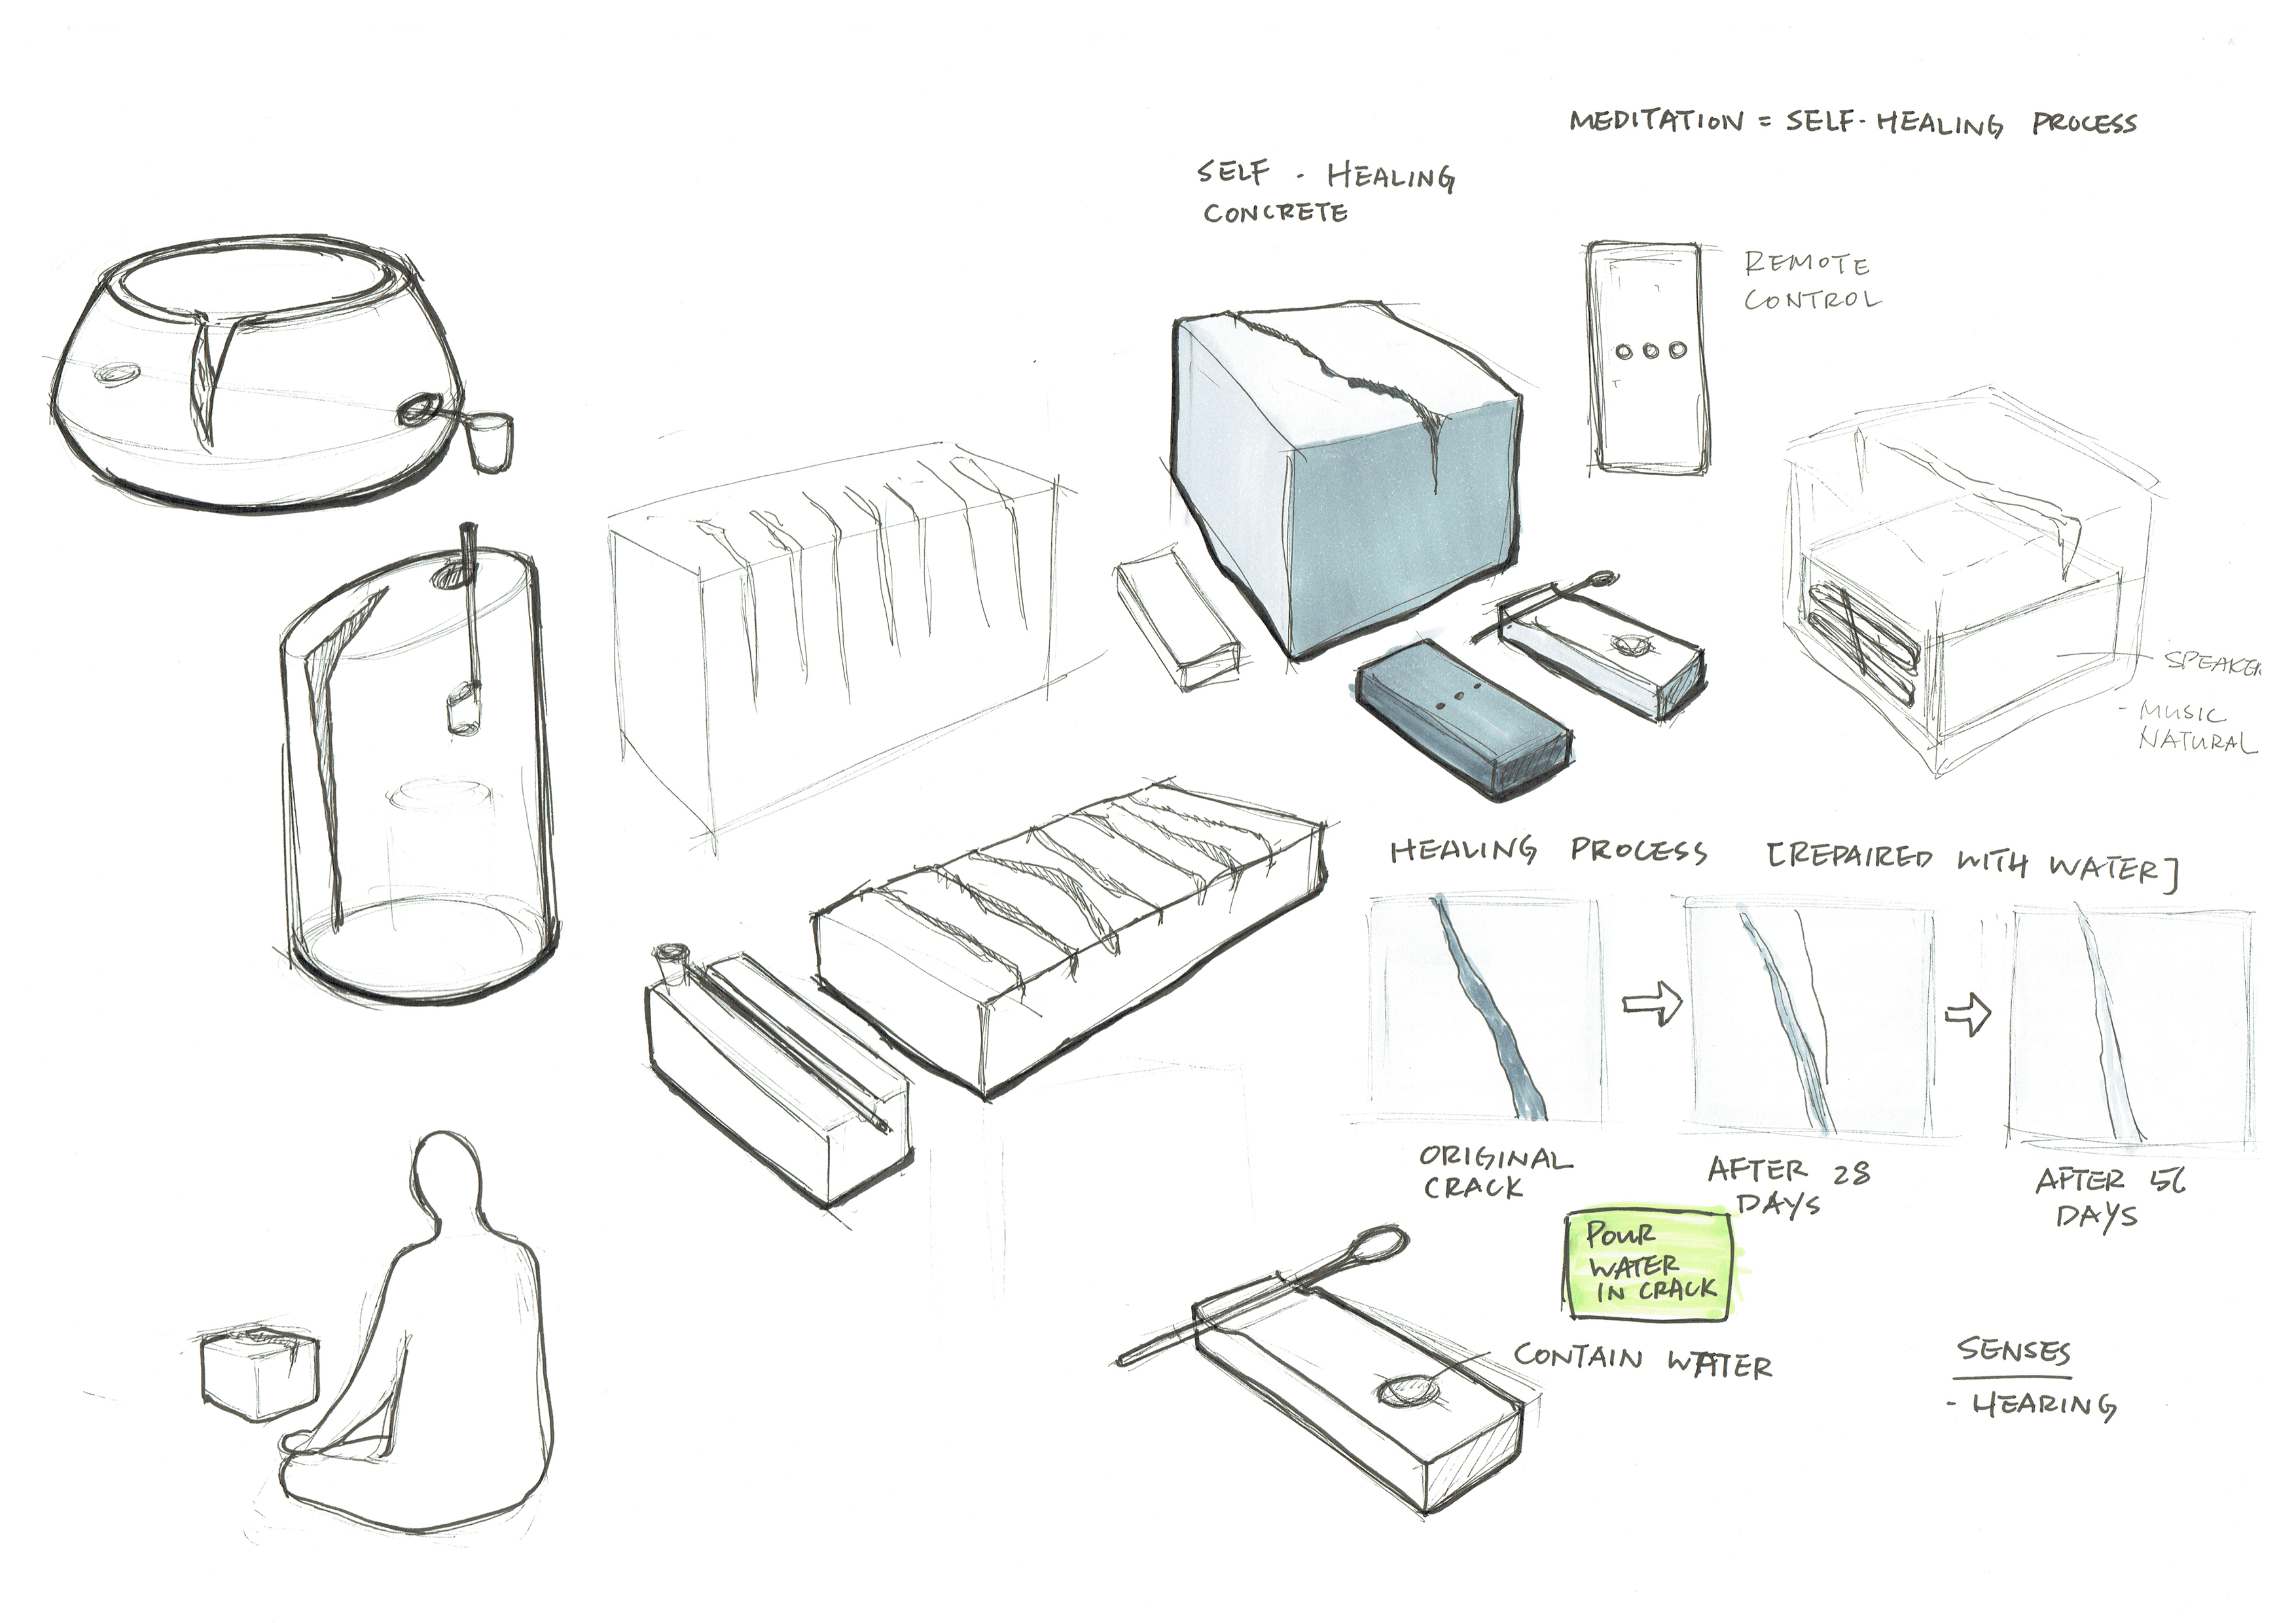 MEDITATION = SELF-HEALING PROCESS
SELF - HEALING
CONCRETE
REMOTE
CONTROL
SPEAKER
- MUSIC
NATURAL
HEALING PROCESS [REPAIRED WITH WATER]
ORIGINAL
CRACK
AFTER 28
DAYS
AFTER 56
DAYS
POUR
WATER
IN CRACK
CONTAIN WATER
SENSES
- HEARING